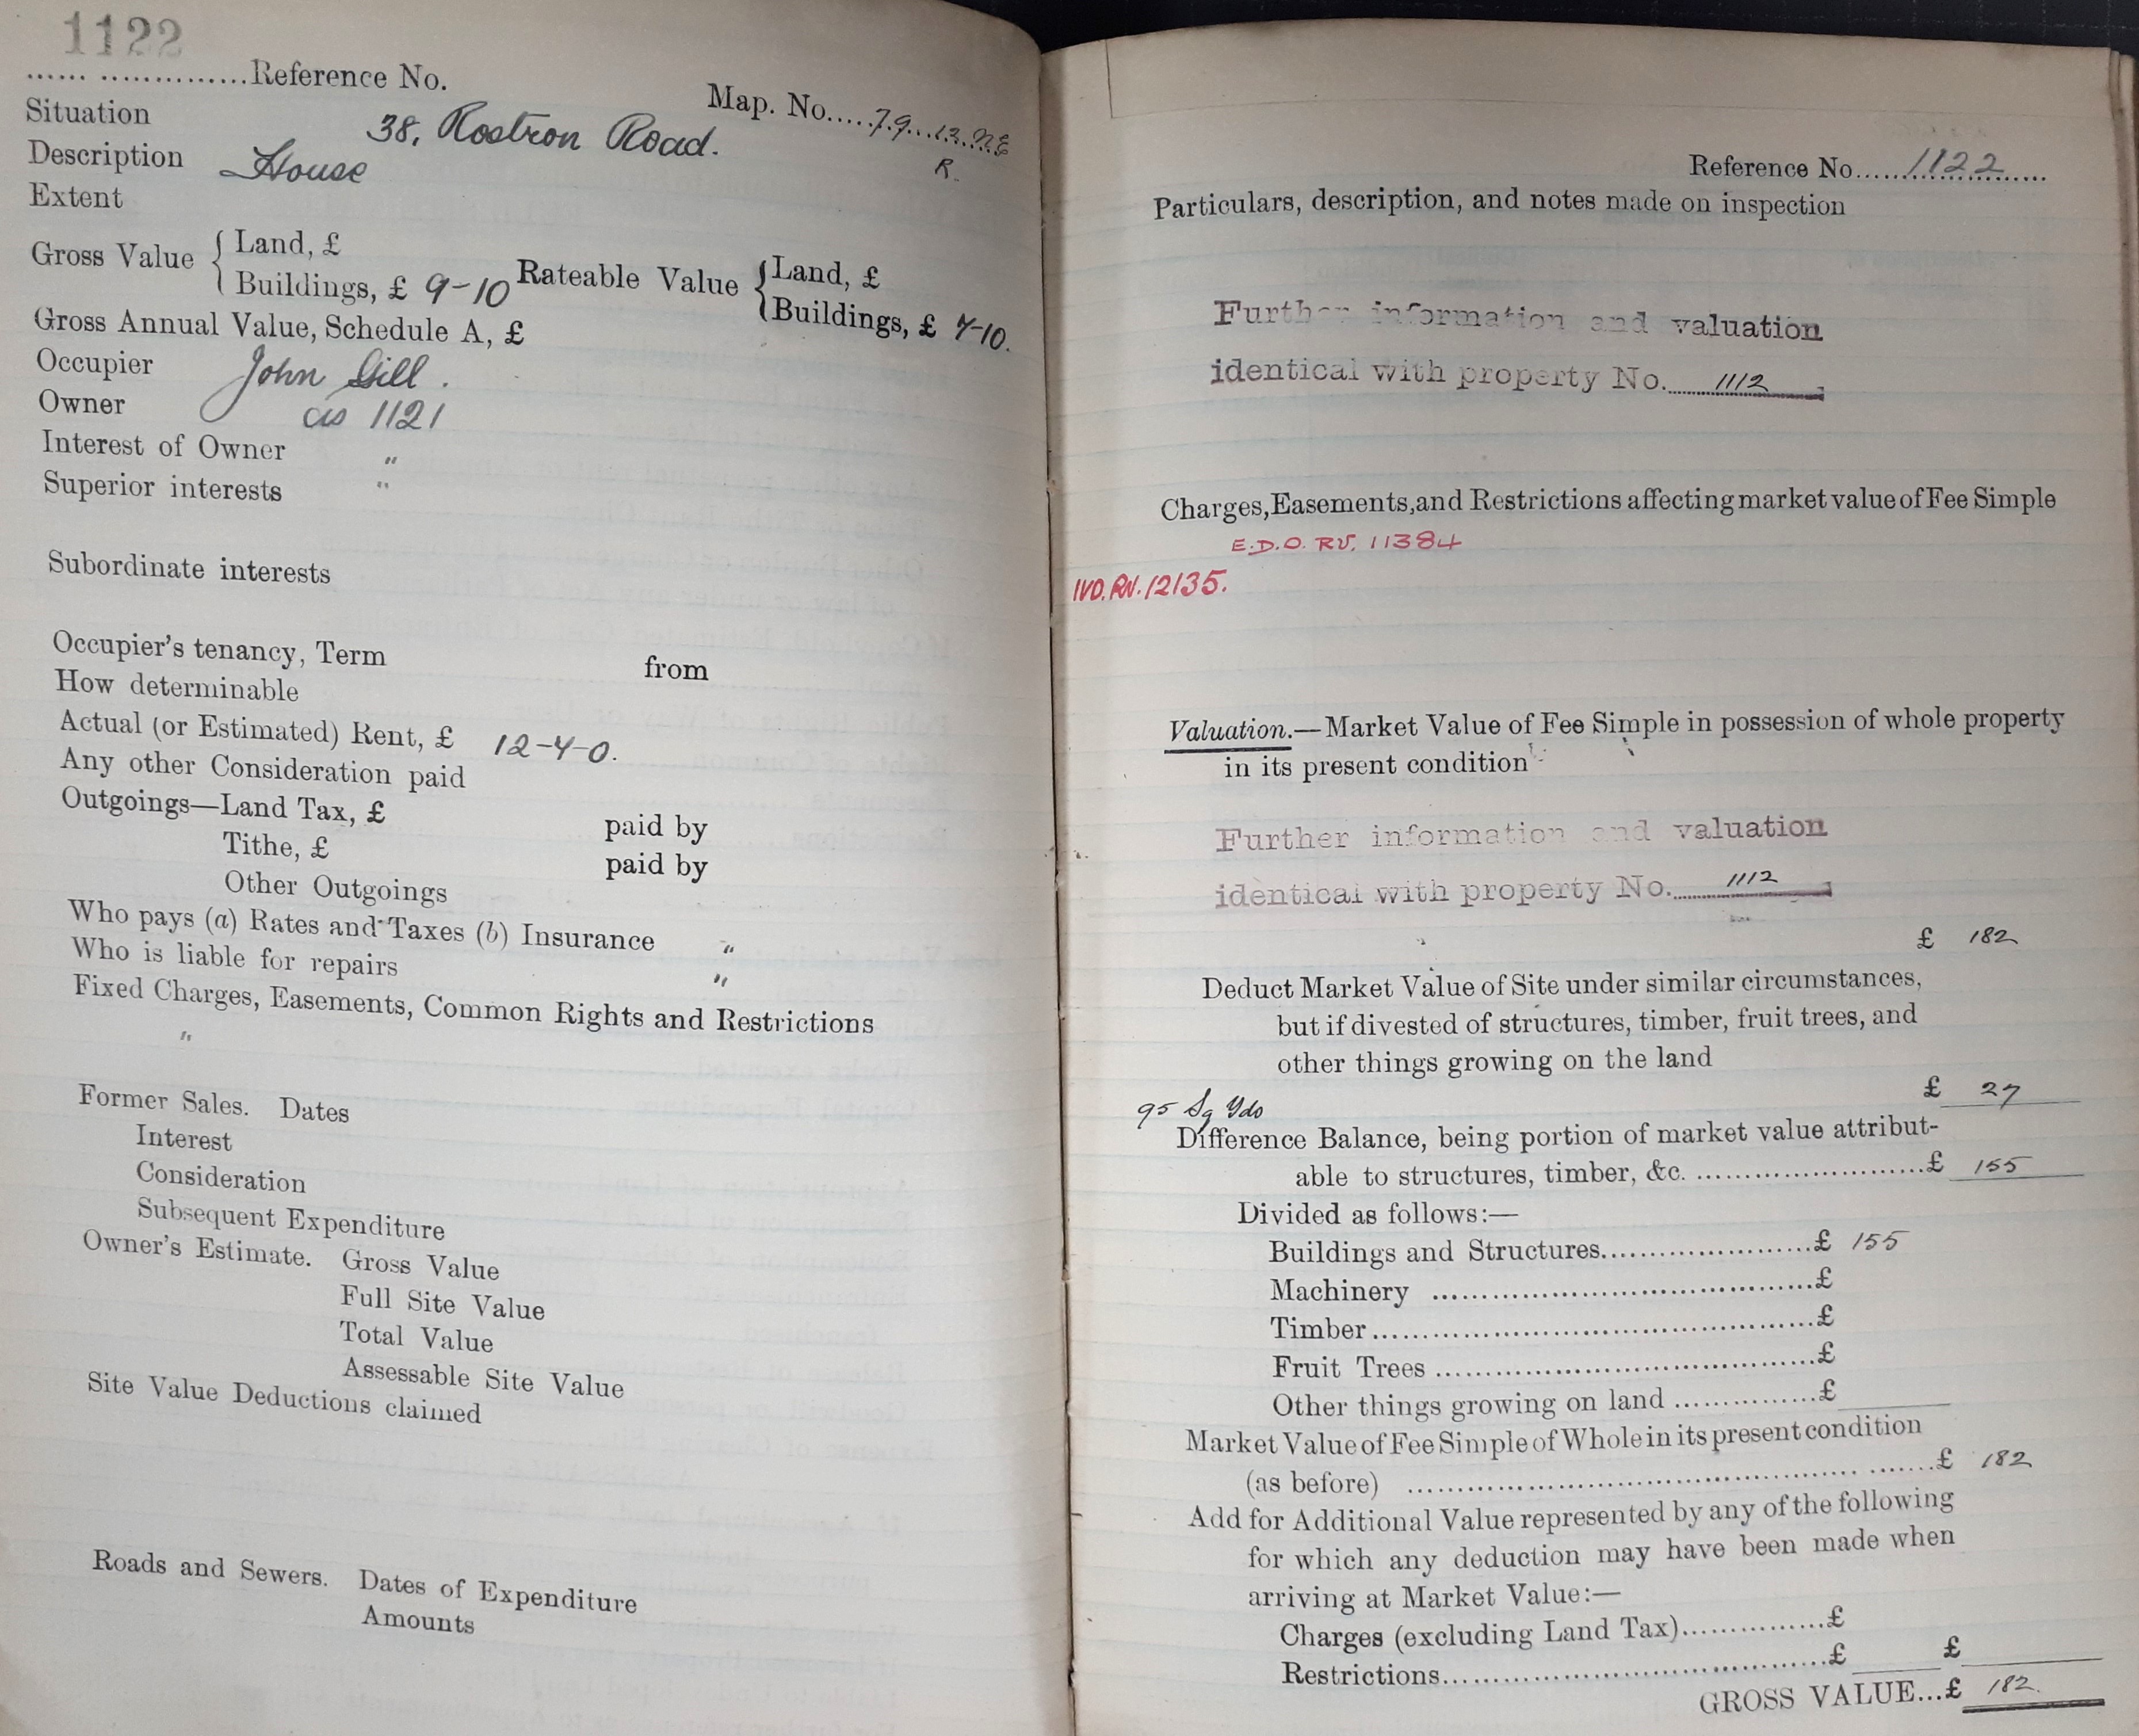 1122
Reference No.
Map. No. 79.13.NE
R.
Situation 38, Rostron Road.
Description House
Extent
Gross Value { Land, £
Buildings, £ 9-10
Rateable Value { Land, £
Buildings, £ 7-10.
Gross Annual Value, Schedule A, £
Occupier John Gill.
Owner as 1121
Interest of Owner "
Superior interests "
Subordinate interests
Occupier's tenancy, Term from
How determinable
Actual (or Estimated) Rent, £ 12-4-0.
Any other Consideration paid
Outgoings—Land Tax, £ paid by
Tithe, £ paid by
Other Outgoings
Who pays (a) Rates and Taxes (b) Insurance "
Who is liable for repairs "
Fixed Charges, Easements, Common Rights and Restrictions
"
Former Sales. Dates
Interest
Consideration
Subsequent Expenditure
Owner's Estimate. Gross Value
Full Site Value
Total Value
Assessable Site Value
Site Value Deductions claimed
Roads and Sewers. Dates of Expenditure
Amounts
Reference No. 1122
Particulars, description, and notes made on inspection
Further information and valuation
identical with property No. 1112
Charges, Easements, and Restrictions affecting market value of Fee Simple
E.D.O. RV. 11384
IVD. RN. 12135.
Valuation.—Market Value of Fee Simple in possession of whole property
in its present condition
Further information and valuation
identical with property No. 1112
£ 182
Deduct Market Value of Site under similar circumstances,
but if divested of structures, timber, fruit trees, and
other things growing on the land
£ 27
95 Sq Yds
Difference Balance, being portion of market value attribut-
able to structures, timber, &c. £ 155
Divided as follows:—
Buildings and Structures £ 155
Machinery £
Timber £
Fruit Trees £
Other things growing on land £
Market Value of Fee Simple of Whole in its present condition
(as before) £ 182
Add for Additional Value represented by any of the following
for which any deduction may have been made when
arriving at Market Value:—
Charges (excluding Land Tax) £
Restrictions £ £
GROSS VALUE...£ 182.